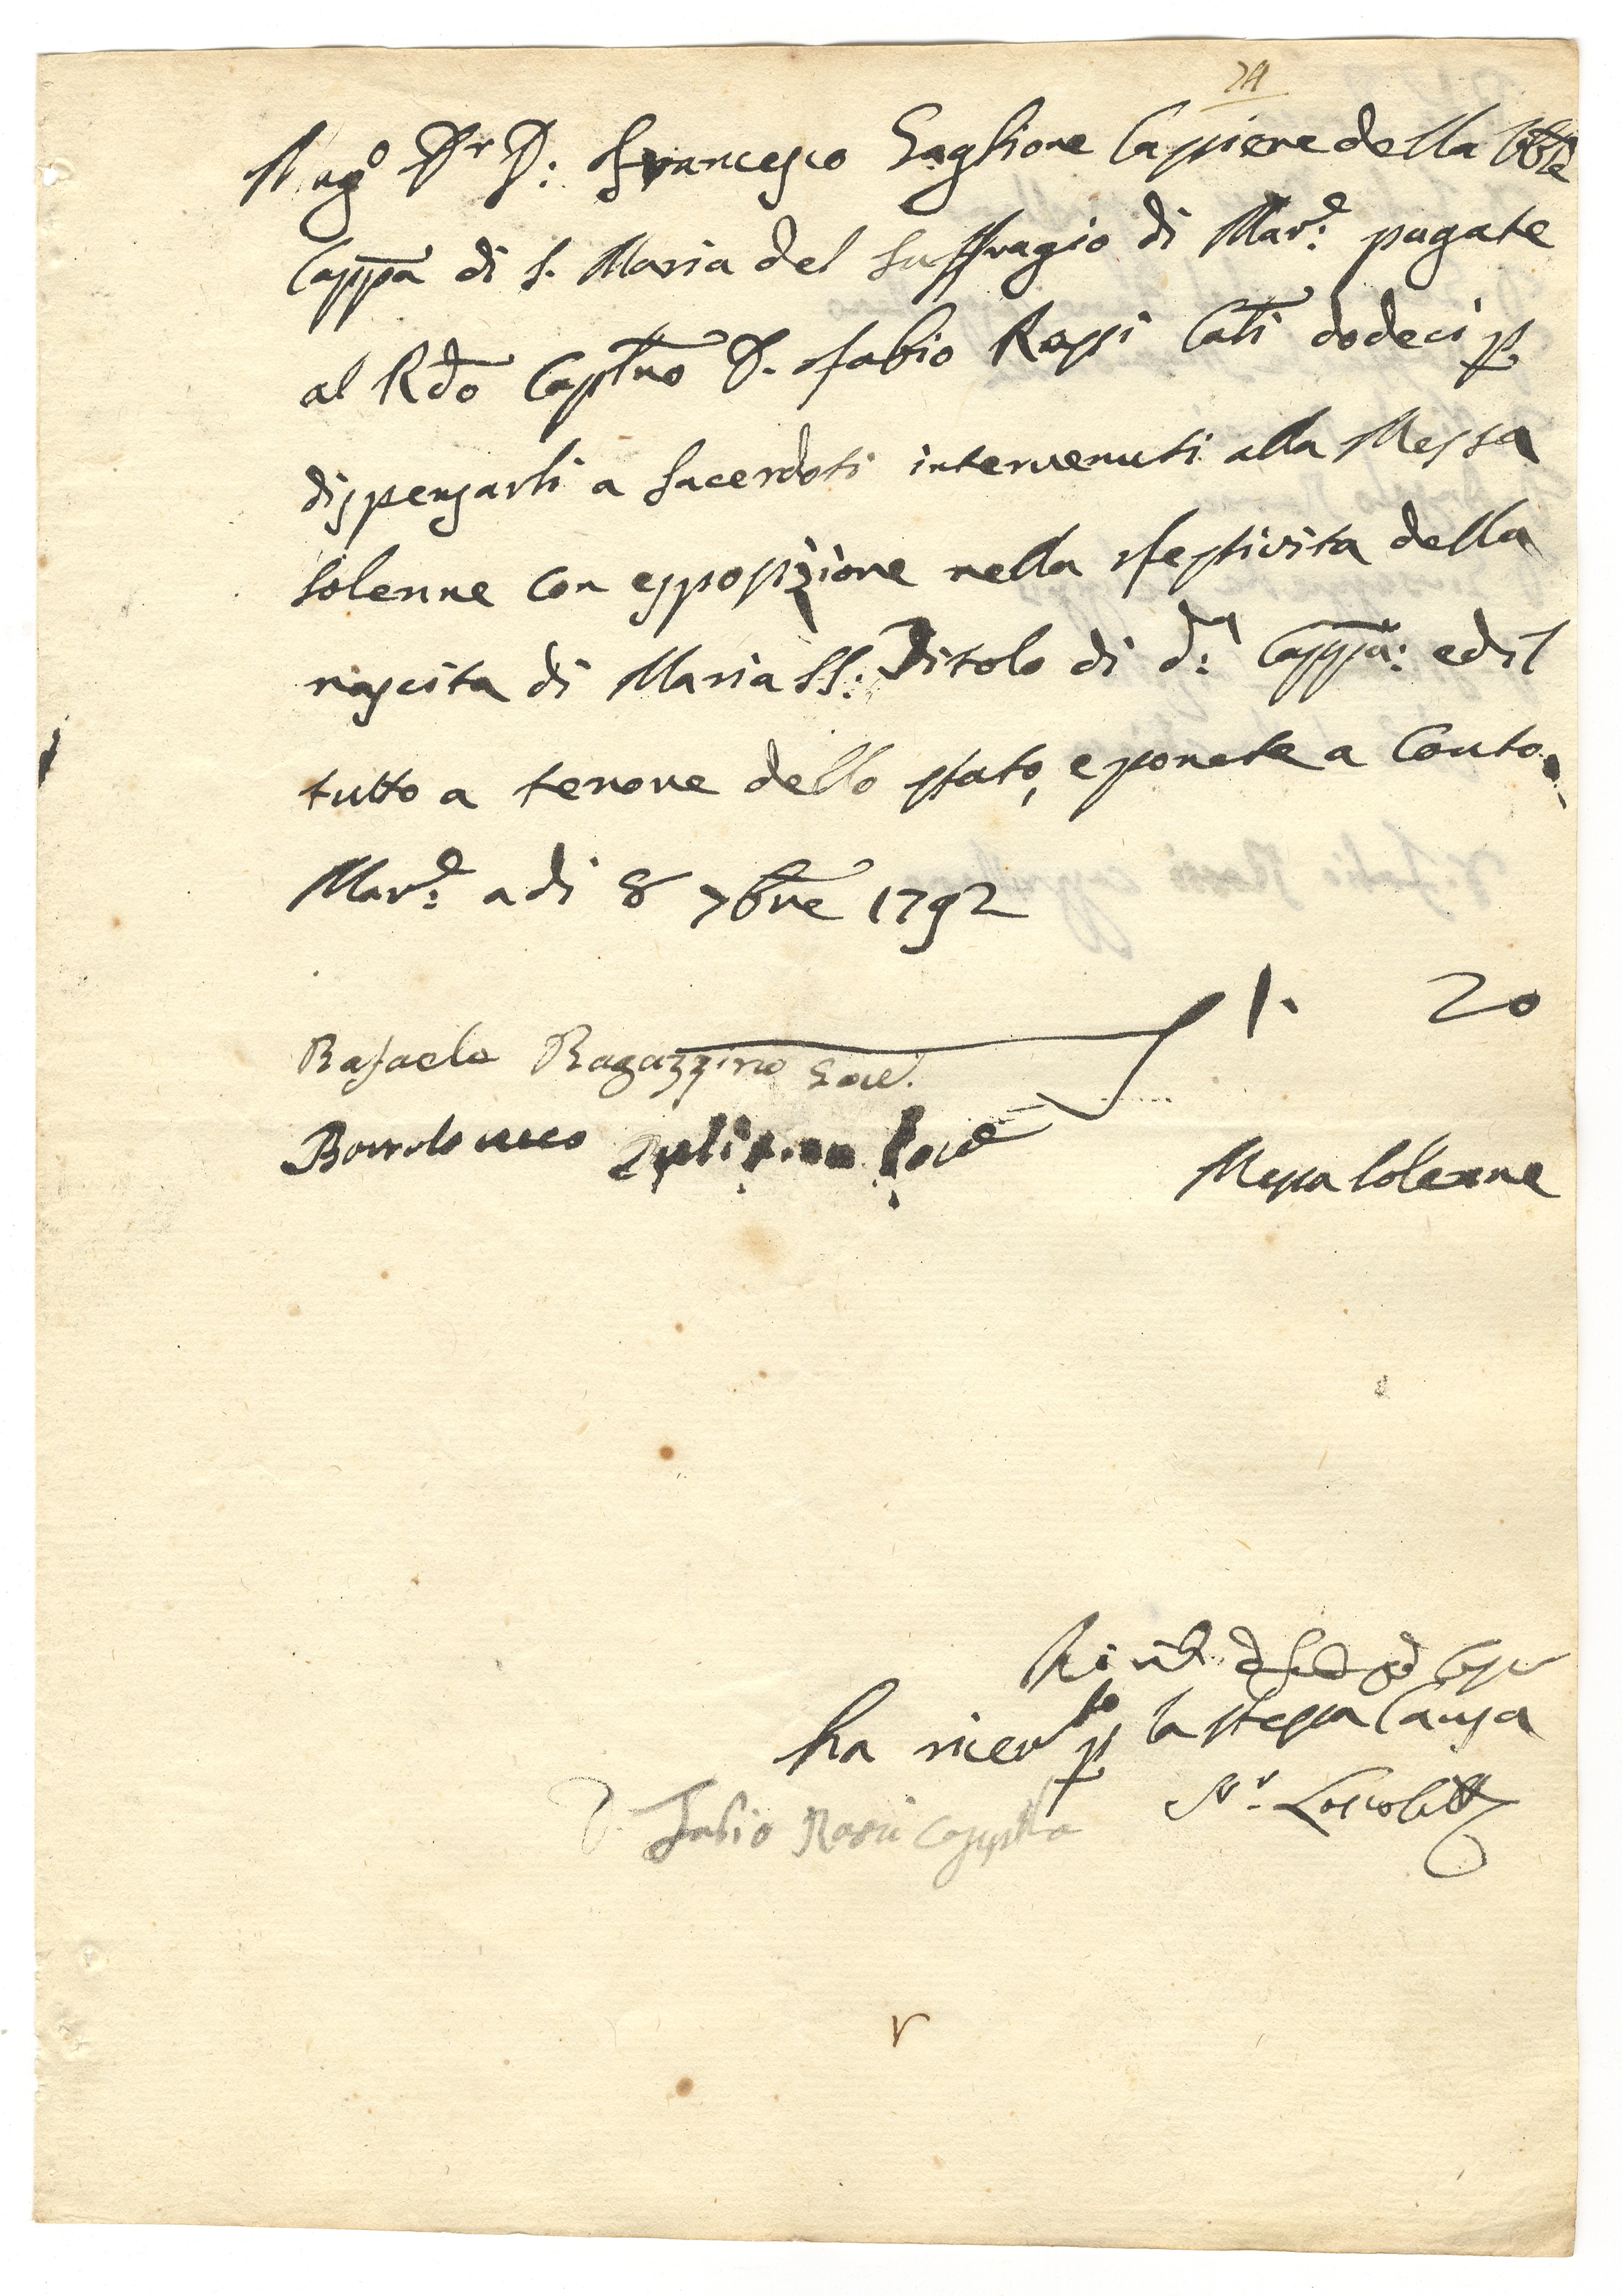 Mag.co Dr D: Francesco Saglione Cassiere della Vble
Cappa di S. Maria del Suffragio di Mar.e pagate
al Rdo Capllno D. Fabio Rossi Cnti dodeci p
dispensarli a Sacerdoti intervenuti alla Messa
Solenne con esposizione nella festività della
nascita di Maria SS: Titolo di d:a Cappa: ed il
tutto a tenore dello stato, e ponete a Conto.
Mar.e a di 8 7bre 1792
1. 20
Rafaele Ragazzino
Bartolomeo
Messa Solenne
ha ricevto p la stessa Causa
D. Fabio Rossi Cappllno